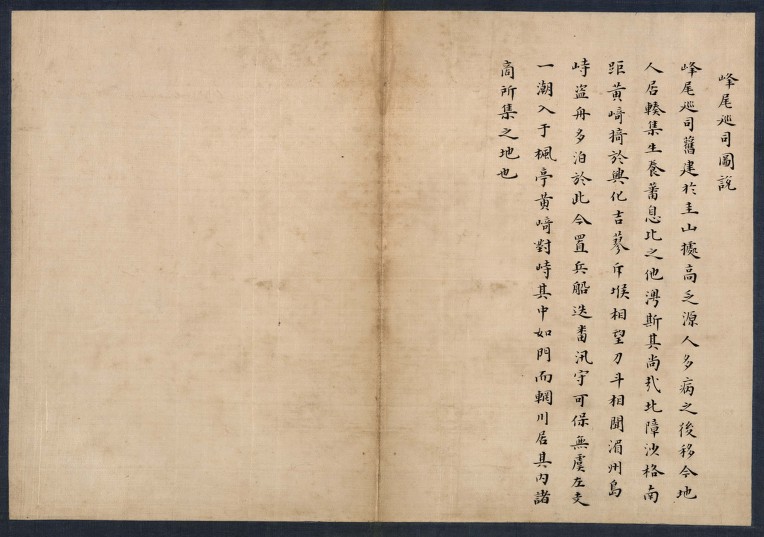 峰尾廵司圖說
峰尾廵司舊建於圭山據高乏源人多病之後移今地
人居輳集生養蕃息比之他灣斯其尚㢤北障沙格南
距黄﨑掎於興化吉蓼斥堠相望刁斗相聞湄州島
峙盜舟多泊於此今置兵船迭番汛守可保無虞左支
一潮入于楓亭黄﨑對峙其中如門而輞川居其内諸
商所集之地也